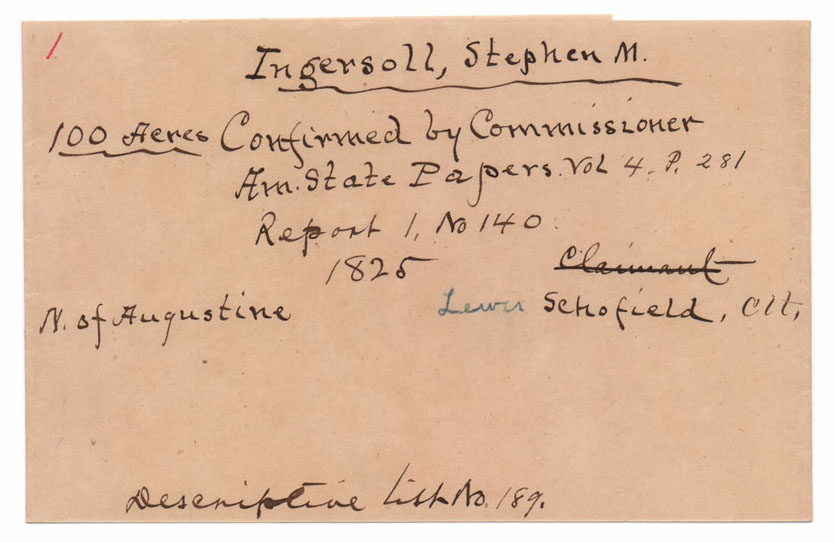 1
Ingersoll, Stephen M.
100 Acres Confirmed by Commissioner
Am. State Papers. Vol 4. P. 281
Report 1, No 140
1825
Claimant
N. of Augustine Lewis Schofield, Clt,
Descriptive List No. 189.